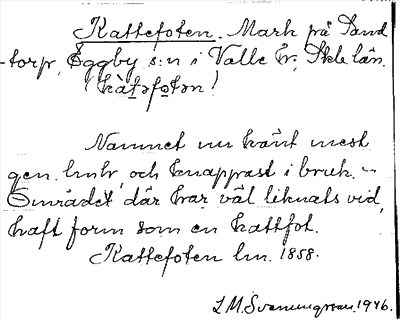 Kattefoten. Mark på Sand
-torp, Eggby s:n i Valle hr, Skbl län.
(kàtəfo̲tən)
Namnet nu känt mest
gen. lmkr, och knappast i bruk. –
Området där har väl liknats vid,
haft form som en kattfot.
Kattefoten lm. 1858.
L.M. Svenungsson. 1946.